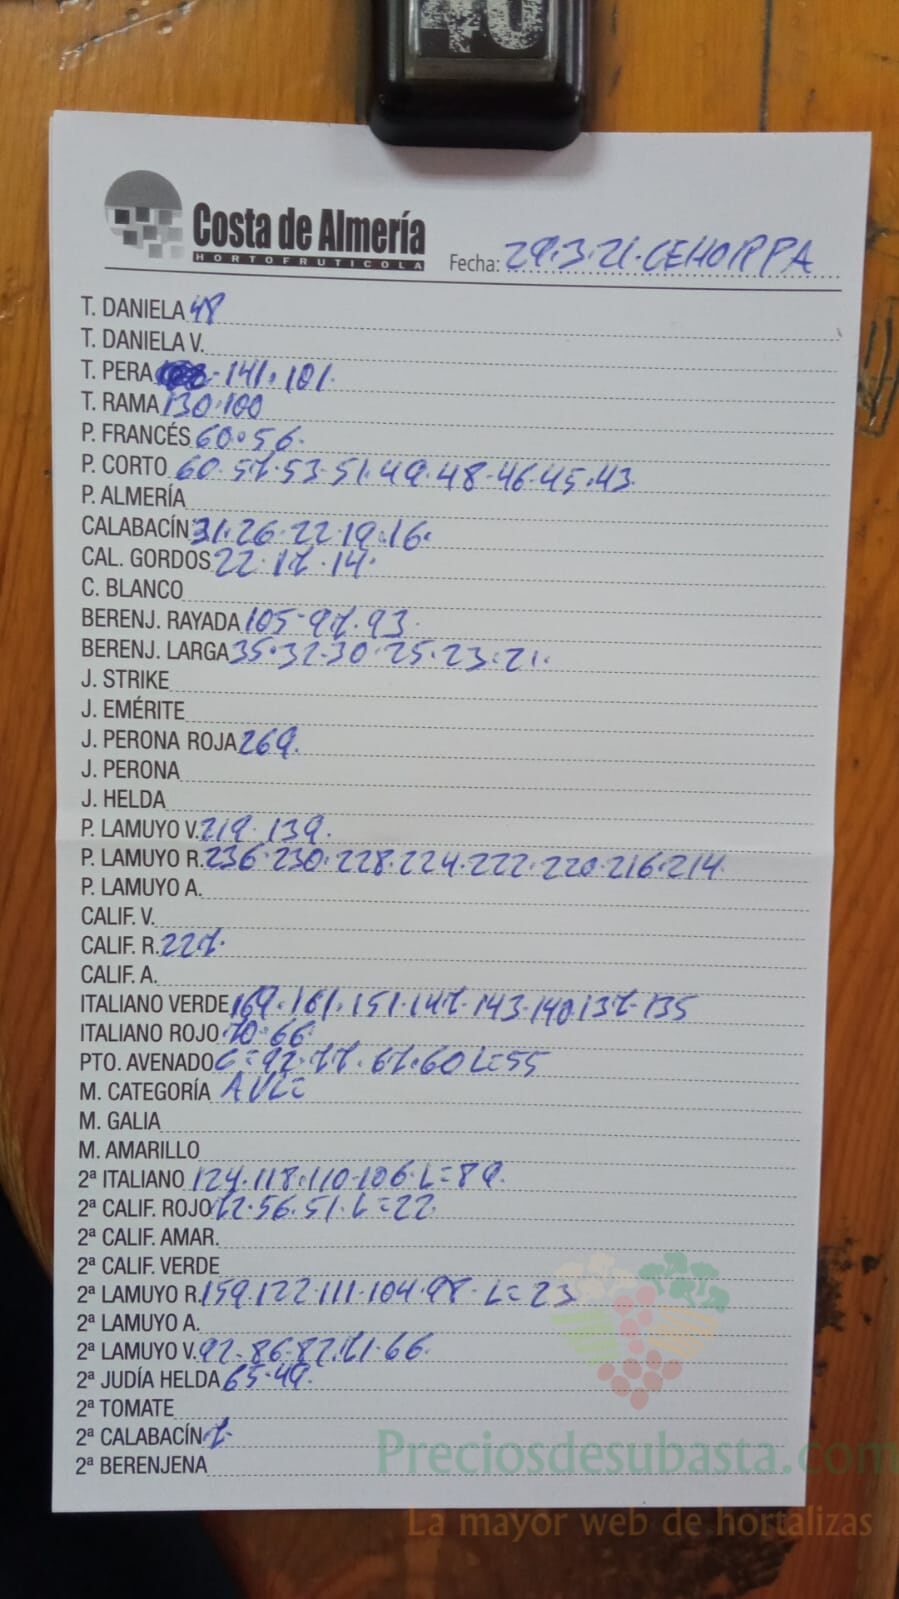 Costa de Almería
HORTOFRUTICOLA
Fecha: 29.3.21. CEHORPPA
T. DANIELA 48
T. DANIELA V.
T. PERA - 141. 101.
T. RAMA 130.100
P. FRANCÉS 60.56.
P. CORTO 60.57.53.51.49.48.46.45.43.
P. ALMERÍA
CALABACÍN 31.26.22.19.16.
CAL. GORDOS 22.17.14.
C. BLANCO
BERENJ. RAYADA 105-97.93.
BERENJ. LARGA 35.32.30.25.23.21.
J. STRIKE
J. EMÉRITE
J. PERONA ROJA 269.
J. PERONA
J. HELDA
P. LAMUYO V. 219.139.
P. LAMUYO R. 236.230.228.224.222.220.216.214.
P. LAMUYO A.
CALIF. V.
CALIF. R. 227.
CALIF. A.
ITALIANO VERDE 169.161.151.147.143.140.137.135
ITALIANO ROJO 70.66.
PTO. AVENADO C=92.77.67.60 L=55
M. CATEGORÍA AVL=
M. GALIA
M. AMARILLO
2ª ITALIANO 124.118.110.106.L=89.
2ª CALIF. ROJO 72.56.51.L=22.
2ª CALIF. AMAR.
2ª CALIF. VERDE
2ª LAMUYO R. 159.122.111.104.98.L=23
2ª LAMUYO A.
2ª LAMUYO V. 92.86.82.71.66.
2ª JUDÍA HELDA 65.49.
2ª TOMATE
2ª CALABACÍN 7-
2ª BERENJENA
Preciosdesubasta.com
La mayor web de hortalizas